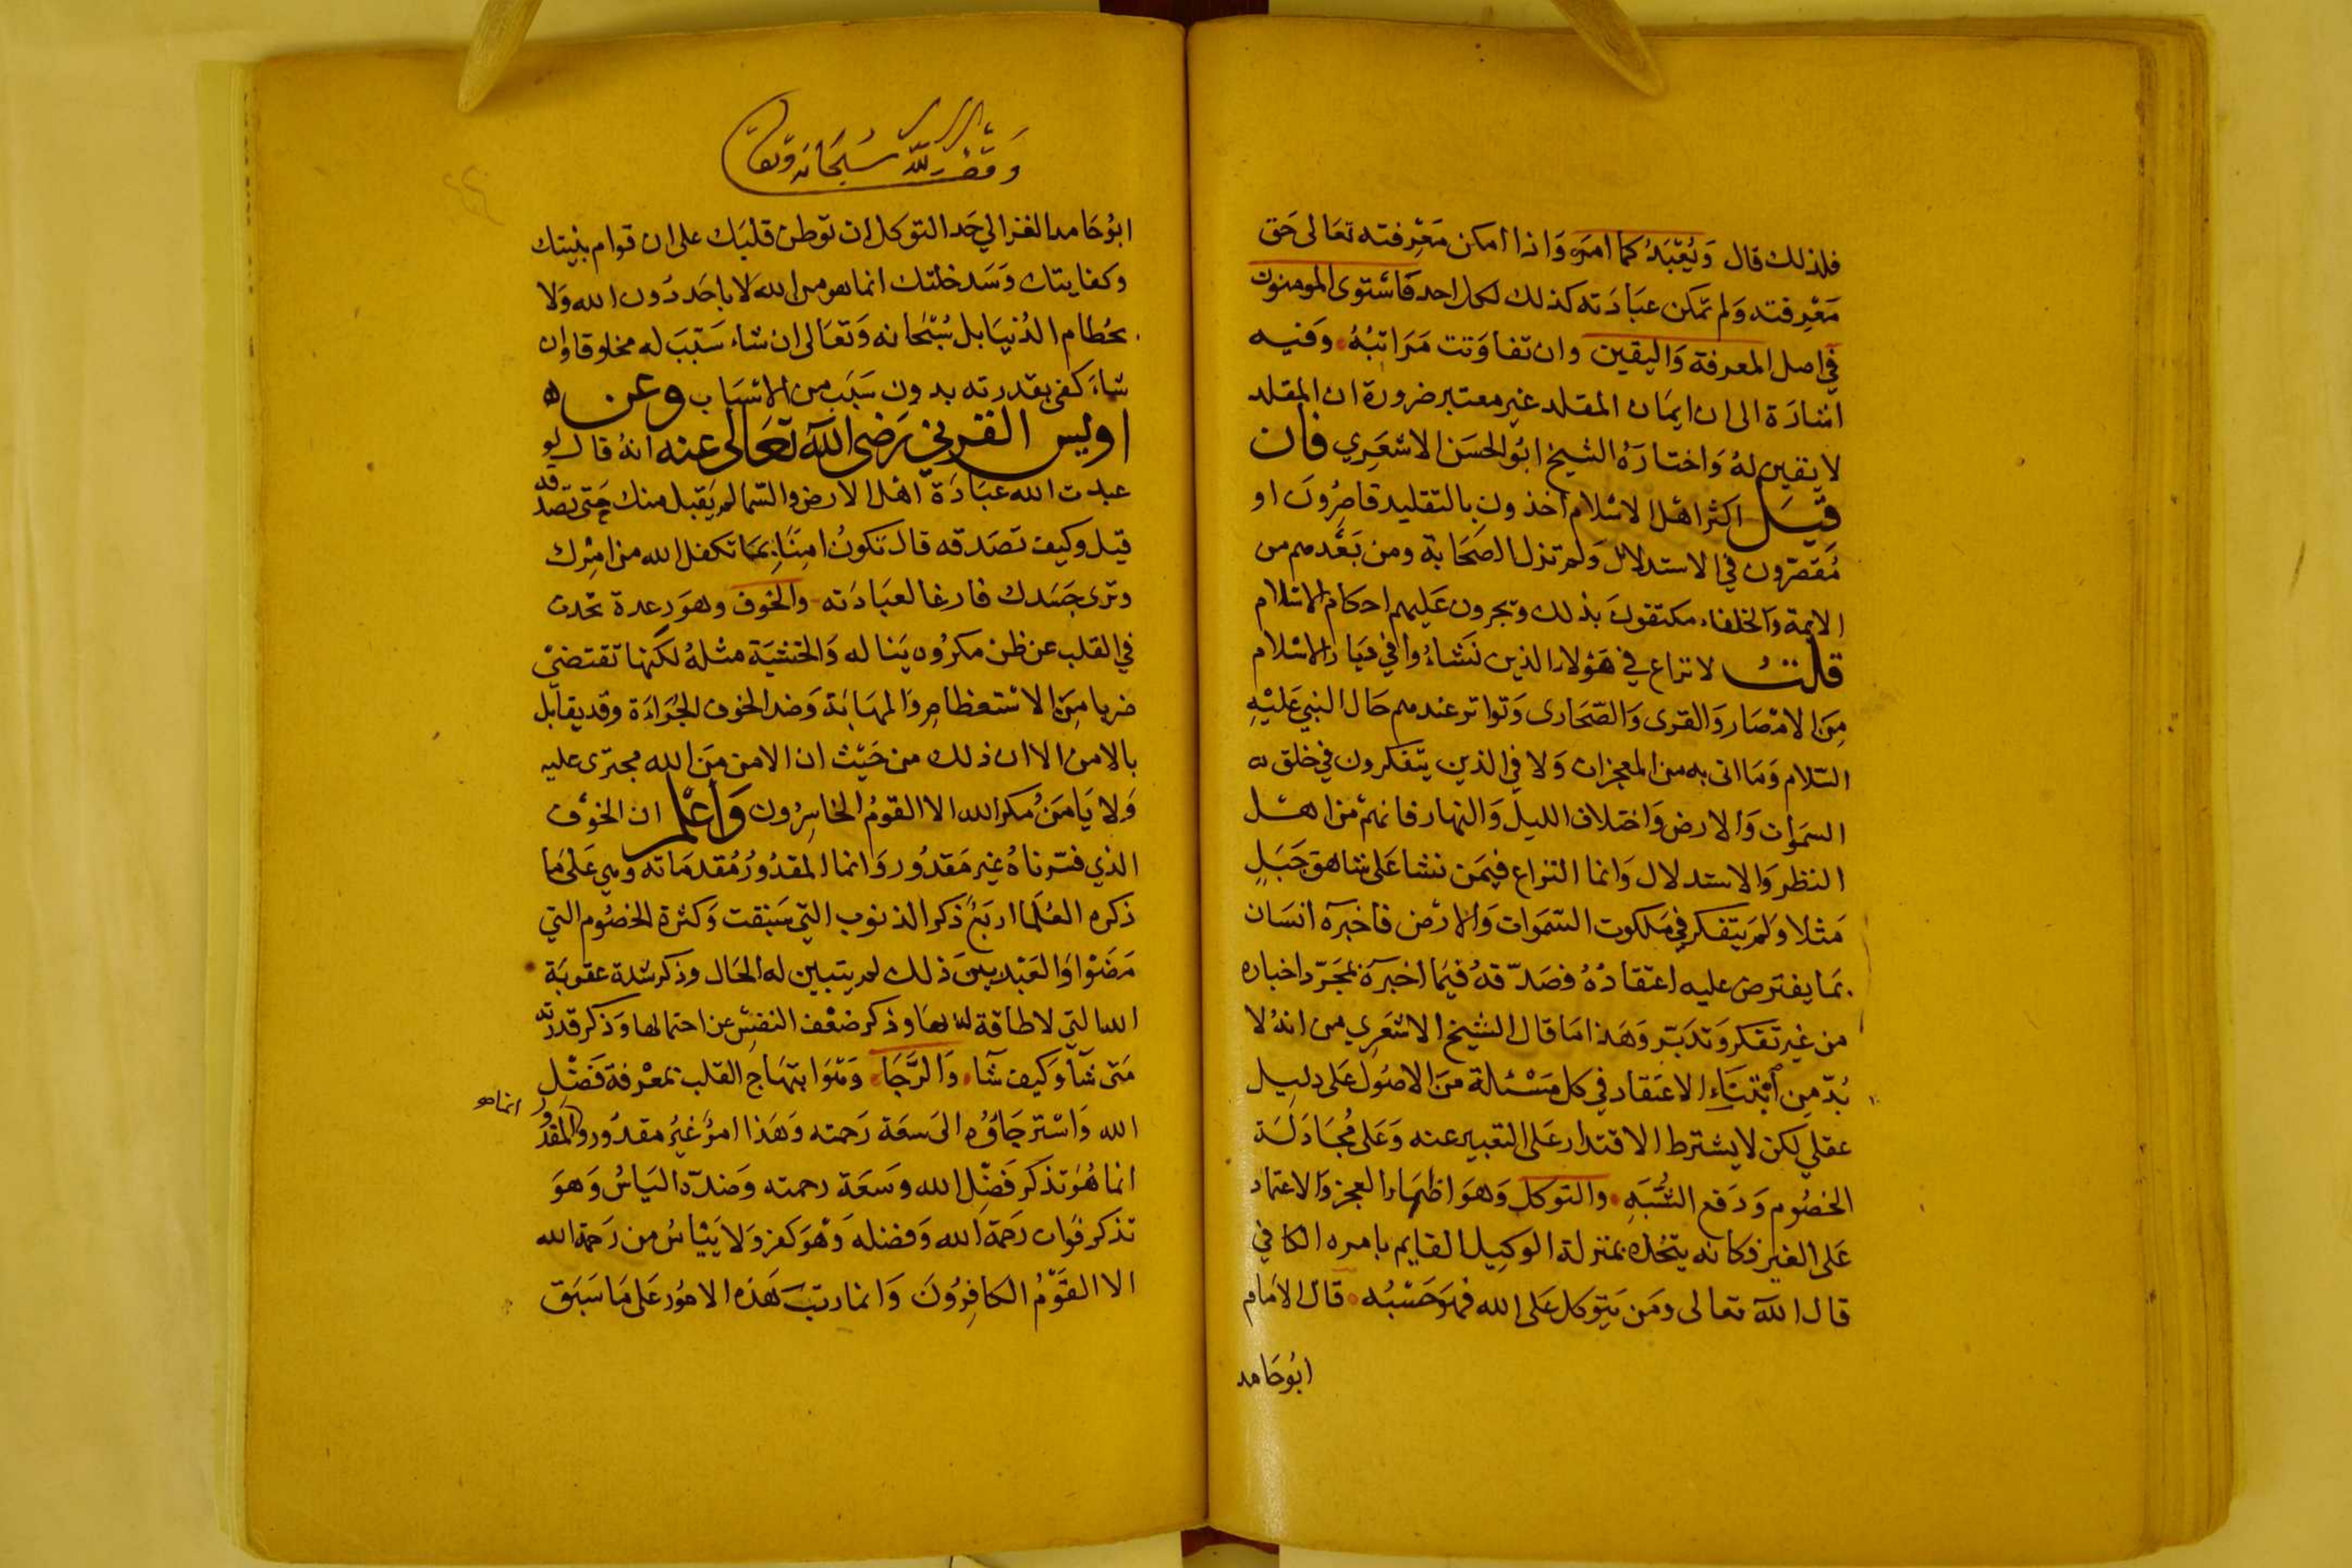 فلذلك قال وَيُعْبَدُ كما امَرَ وَاذا امكن مَعْرِفته تعَالى حَق
مَعْرِفته وَلم تمكن عبَادَته كذلك لكل احد فَاسْتوى المومنون
في اصل المعرفة وَاليقين وان تفاوَتت مَرَاتبُهُ وَفيه
اشارَة الى ان ايمَان المقلد غير معتبر ضرورة ان المقلد
لا يقين لهُ وَاختارَهُ الشيخ ابُو الحسَن الاشعَرِي فان
قيَل اكثر اهْل الاسْلام اخذون بالتقليد قاصِرُونَ او
مُقصّرون في الاستدلال وَلم تزل الصَحَابة ومن بَعْدهم من
الايمة وَالخلفاء مكتفونَ بذلك ويجرون عَليهم احكام الاسْلام
قلتُ لا نزاع في هَؤلاء الذين نَشَاءُوا في ديَار الاسْلام
مِنَ الامْصَار وَالقرى وَالصّحَارى وَتواتر عندهم حَال النبي عَليْهِ
السّلام وَمَا اتى به من المعجزات وَلا في الذين يتفكرون في خلق
السَمَوات وَالارض وَاختلاف الليل وَالنهار فانهم من اهْل
النظر وَالاستدلال وَانما النزاع فيمَن نشا عَلى شاهق جَبَلٍ
مَثلا وَلم يتفكر في مَلكوت السّمَوات وَالارض فاخبرَه انسَان
بمَا يفترض عليه اعتقادُهُ فصَدّقهُ فيمَا اخبرَهُ بمجَرّد اخباره
من غير تفكر وَتدَبّر وَهَذا مَا قال الشيخ الاشعَرِي من انهُ لا
بُدّ مِن ابْتنَاءِ الاعتقاد في كل مَسْئلة مِنَ الاصُول عَلى دليل
عقلي لكن لا يشترط الاقتدار عَلى التعبير عنه وَعَلى مُجَادَلَة
الخصُوم وَدَفع الشُّبَهِ وَالتوكل وَهوَ اظهَار العجز وَالاعتماد
عَلى الغير فكانه يتخذه بمنزلة الوكيل القايم بامره الكافي
قال اللّه تعالى ومَن يَتوكل عَلى الله فهْوَ حَسْبُه قال الامَام
ابُوحَامد
وَقف لله سُبحَانه وتعا
ابُوحَامد الغزالي حَد التوكل ان توَطن قلبَك على ان قوام بنيتك
وكفايتك وَسَد خلتك انما هو من الله لا باحَد دُون الله وَلا
بحُطام الدُنيَا بل سُبْحَانه وَتعَالى ان شاء سَبّبَ له مخلوقا وان
شاءَ كفى بقدرته بدون سَبَب من الاسْبَاب وعن
اويس القرني رَضى اللّه تعَالى عنه انهُ قال لو
عبدت الله عبَادَة اهْل الارض والسّما لم يَقبل منك حَتى تصَدقه
قيل وكيف تصَدقه قال تكونُ امِنًا بمَا تكفل الله من امْرِك
وترى جَسَدك فارغا لعبَادَته وَالخوف وهوَ رعدة تحدث
في القلب عن ظن مكرُوه يَناله وَالخشيَة مثلهُ لكنها تقتضى
ضربا مِنَ الاسْتعظام وَالمهَابَة وَضد الخوف الجُرَاءَة وقد يقابل
بالامن الا ان ذلك من حَيْث ان الامن مِنَ الله مجترى عليه
وَلا يَامَنُ مَكر الله الا القومُ الخاسِرُون وَاعْلم ان الخوْف
الذي فسّرناهُ غير مَقدُور وَانما المقدُورُ مُقدمَاته وهي عَلى مَا
ذكره العُلَمَا اربَعٌ ذكر الذنوب التي سَبَقت وَكثرة الخصُوم التي
مَضَوْا وَالعَبْد بينَ ذلك لم يتبين له الحَال وذكر شدة عقوبَة
الله التي لا طاقة له بهَا وذكر ضعْف النفس عن احتمالها وَذكر قدرته
مَتى شآ وَكيف شآء وَالرَّجَا وَهْوَ ابتهَاج القلب بمعْرفة فَضْل
الله وَاسْترجَاؤُه الى سَعَة رَحمته وَهَذا امرٌ غيُر مقدُور وَالمقدُور
انماهو
انما هُوَ تذكر فَضْل الله وسَعَة رحمته وَضدّه اليَاسُ وَهوَ
تذكر فوَات رَحمَة الله وَفضله وَهْوَ كفر وَلا يَيْاسُ من رَحمة الله
الا القَوْمُ الكافِرُونَ وَانما رتبَ هَذه الامُور عَلى مَا سَبَق